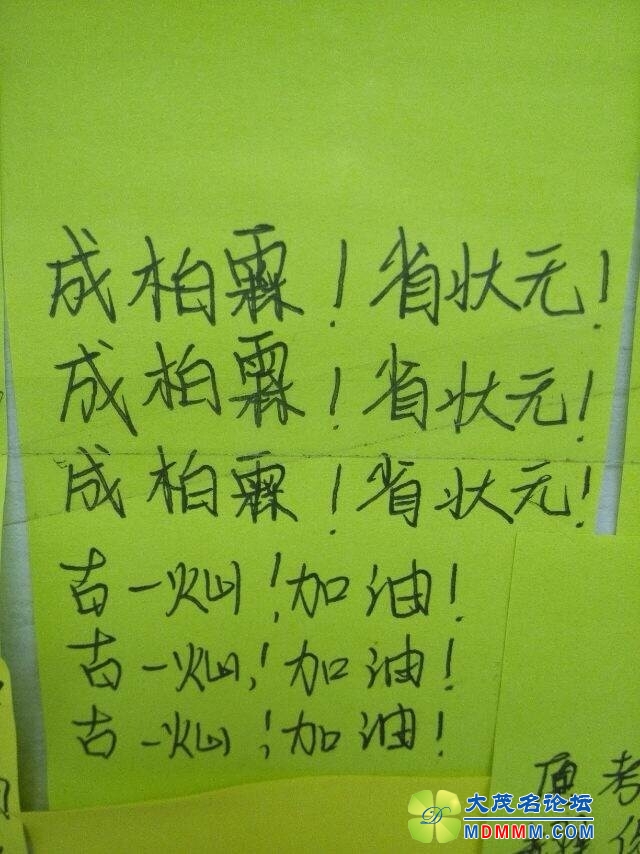 成柏霖！省状元！
成柏霖！省状元！
成柏霖！省状元！
古一灿！加油！
古一灿！加油！
古一灿！加油！
愿考
大茂名论坛
MDMMM.COM